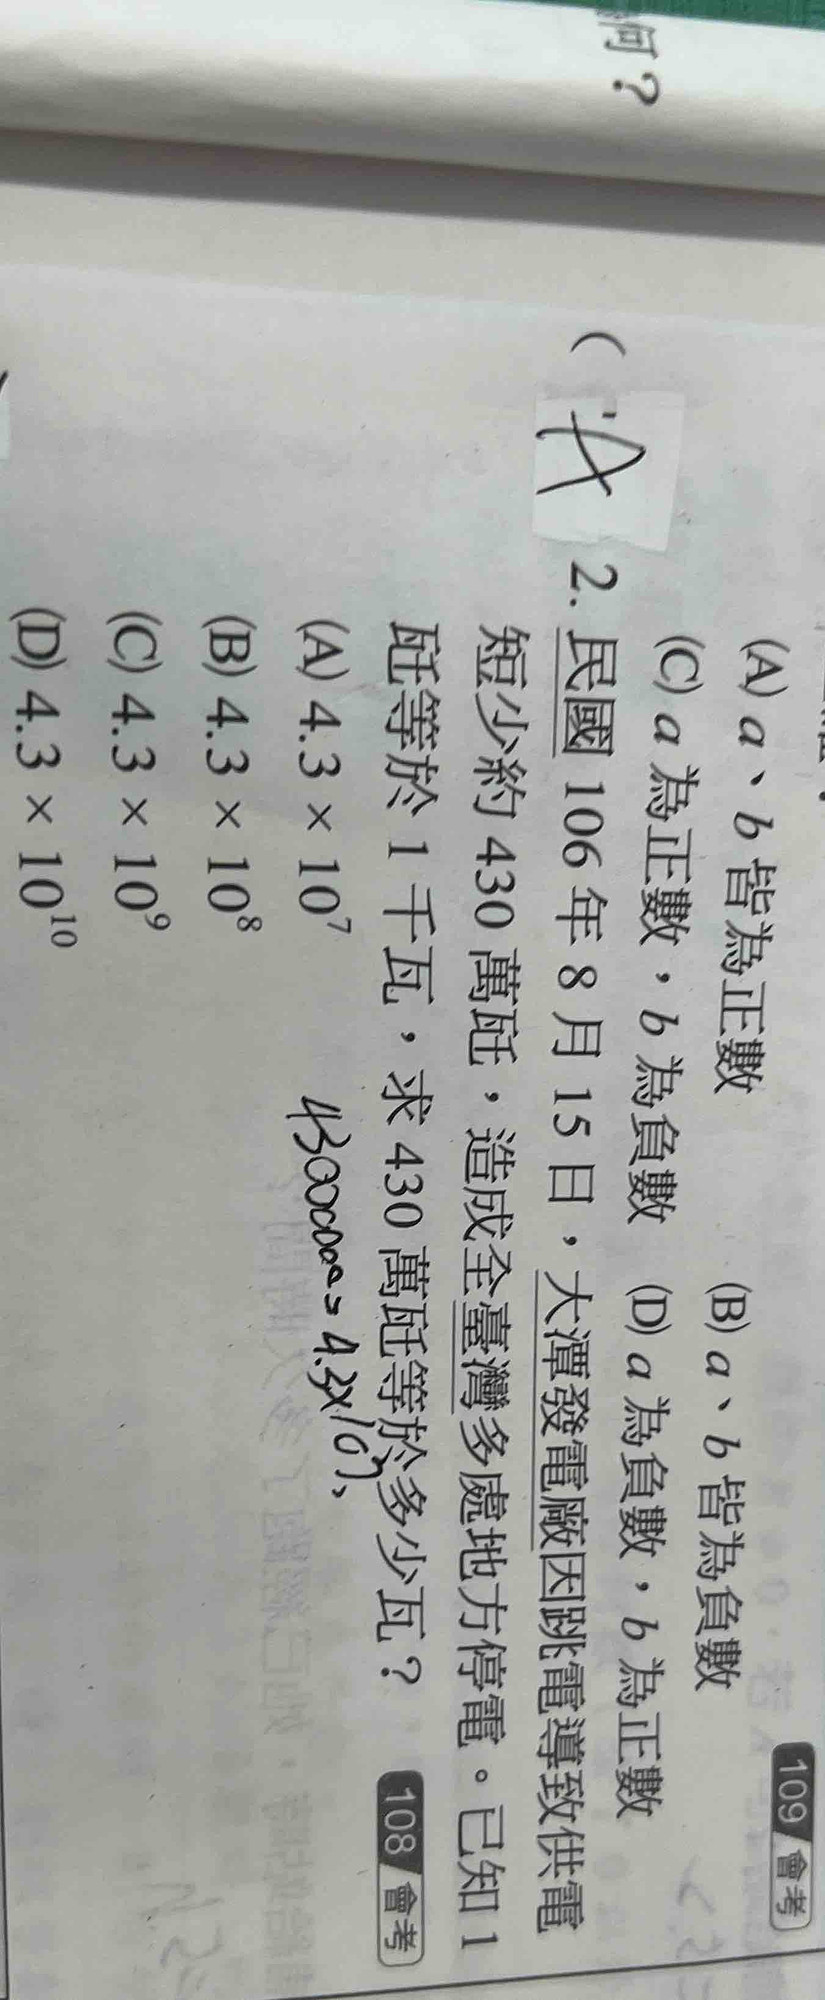 何？
(A) a、b 皆為正數 (B) a、b 皆為負數
(C) a 為正數，b 為負數 (D) a 為負數，b 為正數
109 會考
( A 2. 民國 106 年 8 月 15 日，大潭發電廠因跳電導致供電
短少約 430 萬瓩，造成全臺灣多處地方停電。已知 1
瓩等於 1 千瓦，求 430 萬瓩等於多少瓦？
108 會考
(A) 4.3 × 10⁷
(B) 4.3 × 10⁸
(C) 4.3 × 10⁹
(D) 4.3 × 10¹⁰